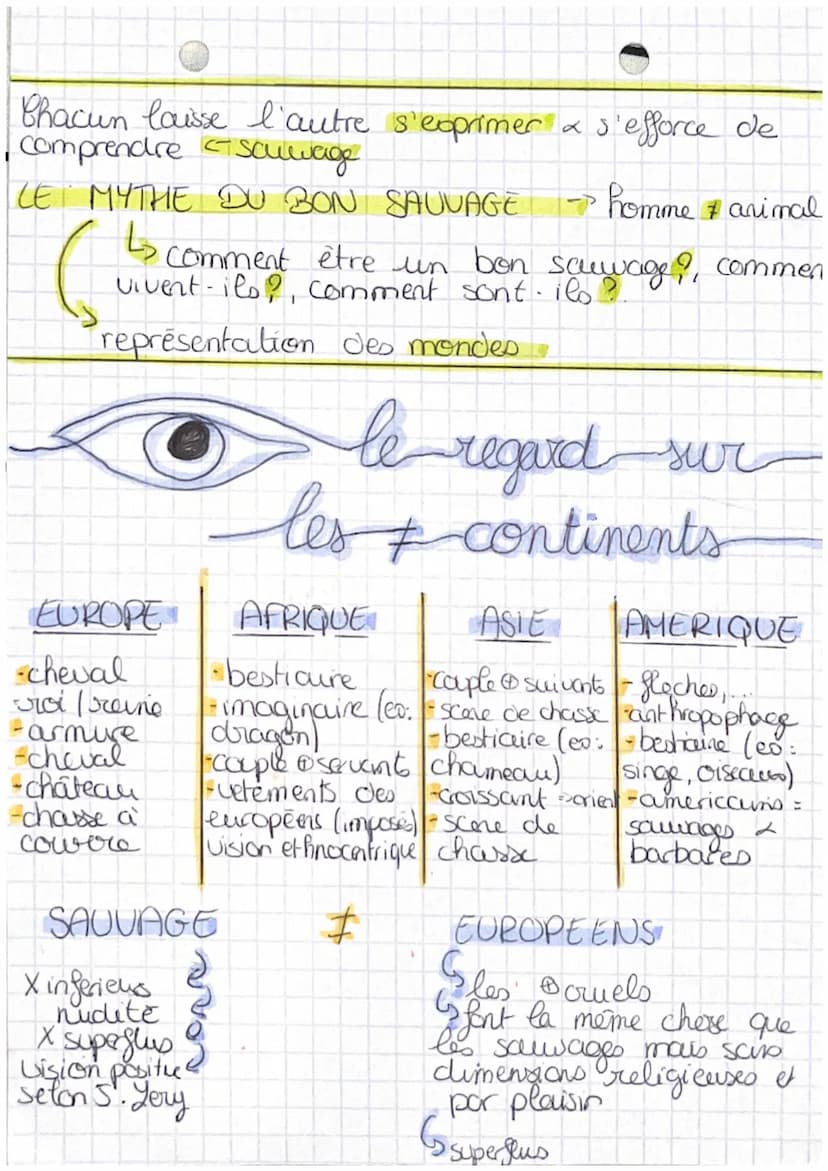 Chacun laisse l'autre s'exprimer & s'efforce de
comprendre ← sauvage
LE MYTHE DU BON SAUVAGE → homme ≠ animal
↳ comment être un bon sauvage?, commen
vivent-ils?, comment sont-ils?
représentation des mondes
le regard sur
les ≠ continents
EUROPE
-cheval
roi / reine
-armure
-cheval
-château
-chasse à
courre
AFRIQUE
-bestiaire
-imaginaire (ex:
dragon)
-couple ⊕ servent
-vêtements des
européens (imposés)
vision ethnocentrique
ASIE
-couple ⊕ suivant
-scène de chasse
-bestiaire (ex:
chameau)
-croissant =orient
-scène de
chasse
AMERIQUE
-fleches,...
-anthropophage
-bestiaire (ex:
singe, oiseaux)
-americains =
sauvages &
barbares
SAUVAGE ≠ EUROPEENS
X inferieurs
nudité
X superflus
vision positive
selon J. Lery
↳ les ⊕ cruels
↳ font la même chose que
les sauvages mais sans
dimensions religieuses et
par plaisir
↳ superflus